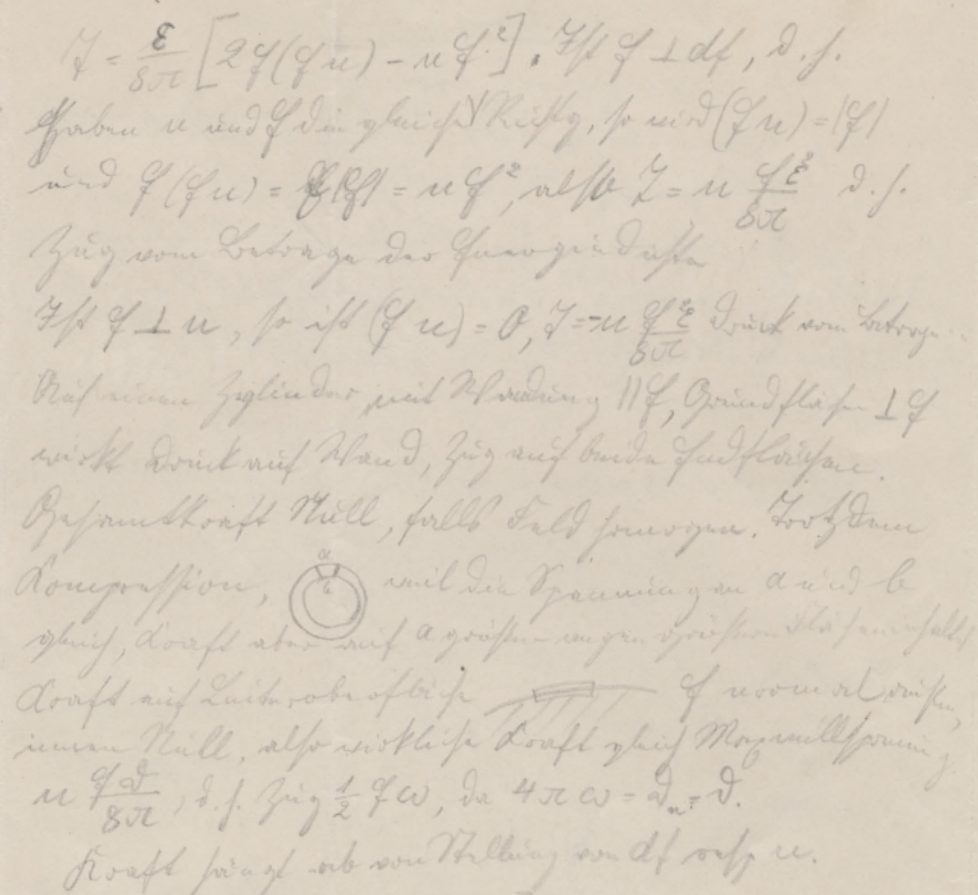 T = ε/8π [2𝔈(𝔈n) − n𝔈²]. Ist 𝔈 ⊥ df, d. h.
Haben n und 𝔈 die gleiche Richtg, so wird (𝔈n) = |𝔈|
und 𝔈(𝔈n) = 𝔈|𝔈| = n𝔈², also T = n 𝔈²ε/8π d. h.
Zug vom Betrage der Energiedichte
Ist 𝔈 ⊥ n, so ist (𝔈n) = 0, T = −n 𝔈²ε/8π Druck vom Betrage
Auf einen Zylinder mit Wandung || 𝔈, Grundfläche ⊥ 𝔈
wirkt Druck auf Wand, Zug auf beide Endflächen.
Gesamtkraft Null, falls Feld homogen. Trotzdem
Kompression, weil die Spannungen a und b
a
b
gleich, Kraft aber auf a größer wegen größeren Flächeninhalts
Kraft auf Leiteroberfläche 𝔈 normal außen,
innen Null, also wirkliche Kraft gleich Maxwellspannung
n 𝔈𝔇/8π, d. h. Zug ½ 𝔈ω, da 4πω = 𝔇ₙ = 𝔇.
Kraft hängt ab von Stellung von df resp n.